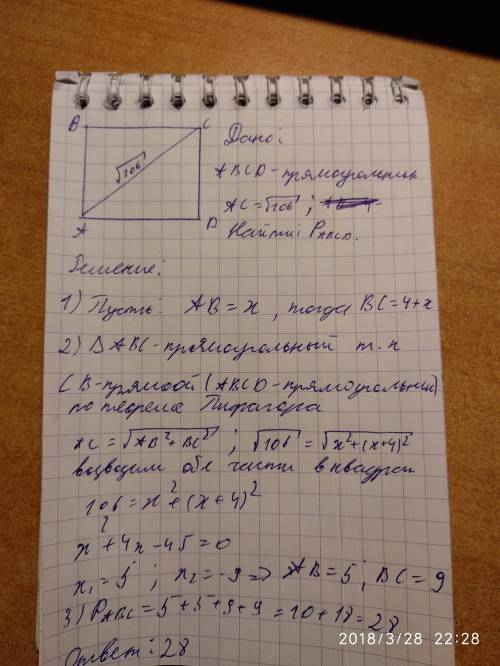 B C
√106
A D
Дано:
ABCD - прямоугольник
AC = √106 ;
Найти: P ABCD.
Решение:
1) Пусть: AB = x , тогда BC = 4+x
2) Δ ABC - прямоугольный т.к
∠ B - прямой (ABCD - прямоугольник)
по теореме Пифагора
AC = √AB²+BC² ; √106 = √x²+(x+4)²
возводим обе части в квадрат
106 = x² + (x+4)²
x² + 4x - 45 = 0
x₁ = 5 ; x₂ = -9 => AB = 5 ; BC = 9
3) P ABC = 5+5+9+9 = 10+18 = 28
Ответ: 28
2018/3/28 22:28